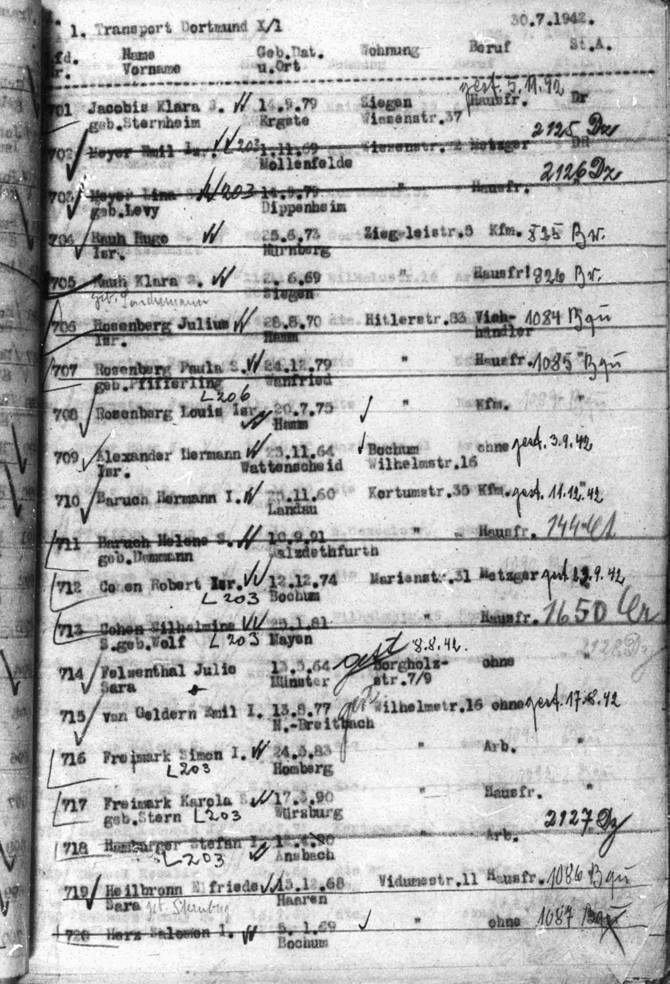 1. Transport Dortmund X/1 30.7.1942.
Name Geb.Dat. Wohnung Beruf St.A.
Vorname u.Ort
gest. 5.11.42
701 Jacobis Klara S. 14.9.79 Siegen Hausfr. Dr
geb.Sternheim Ergste Wiesenstr.37
2125 Dz
702 Meyer Emil Isr. L203 1.11.69 Wiesenstr. Metzger
Mollenfelde
2126 Dz
703 Meyer Lina L203 14.9.79 " Hausfr.
geb.Levy Dippenheim
704 Rauh Hugo 25.6.73 Ziegeleistr.8 Kfm. 825 Br.
Isr. Nürnberg
705 Rauh Klara S. 2.6.69 " Hausfr. 826 Br.
Siegen
706 Rosenberg Julius 28.8.70 Hitlerstr.83 Vieh- 1084 Bqu
Isr. Hamm händler
707 Rosenberg Paula S. 24.12.79 " Hausfr. 1085 Bqu
geb.Pfifferling Wanfried
L206
708 Rosenberg Louis Isr. 20.7.75 " Kfm. "
Hamm
709 Alexander Hermann 23.11.64 Bochum ohne gest. 3.9.42
Isr. Wattenscheid Wilhelmstr.16
710 Baruch Hermann I. 25.11.60 Kortumstr.35 Kfm. gest. 11.12.42
Landau
711 Baruch Helene S. 10.9.91 " Hausfr. 144
geb.Dammann Salzdethfurth
712 Cohen Robert Isr. 12.12.74 Marienstr.31 Metzger gest 9.42
L203 Bochum
713 Cohen Wilhelmine 25.1.81 " Hausfr. 1650
S.geb.Wolf L203 Mayen
gest 8.8.42.
714 Felwenthal Julie 13.3.64 Borgholz- ohne "
Sara Münster str.7/9
715 van Geldern Emil I. 13.8.77 Wilhelmstr.16 ohne gest. 17.8.42
N.-Breitbach
716 Freimark Simon I. 24.5.83 " Arb. "
L203 Homberg
717 Freimark Karola S. 17.3.90 " Hausfr. "
geb.Stern L203 Würzburg
2127 Dz
718 Hamburger Stefan I. " Arb.
L203 Ansbach
719 Heilbronn Elfriede 13.12.68 Vidumestr.11 Hausfr. 1086 Bqu
Sara geb. Sternberg Haaren
720 Herz Salomon I. 5.1.69 " ohne 1087 Bqu
Bochum